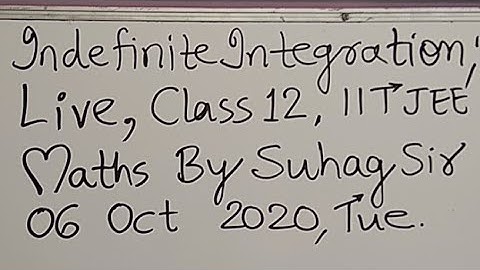 Indefinite Integration,
Live, Class 12, IIT JEE
Maths By Suhag Sir
06 Oct 2020, Tue.